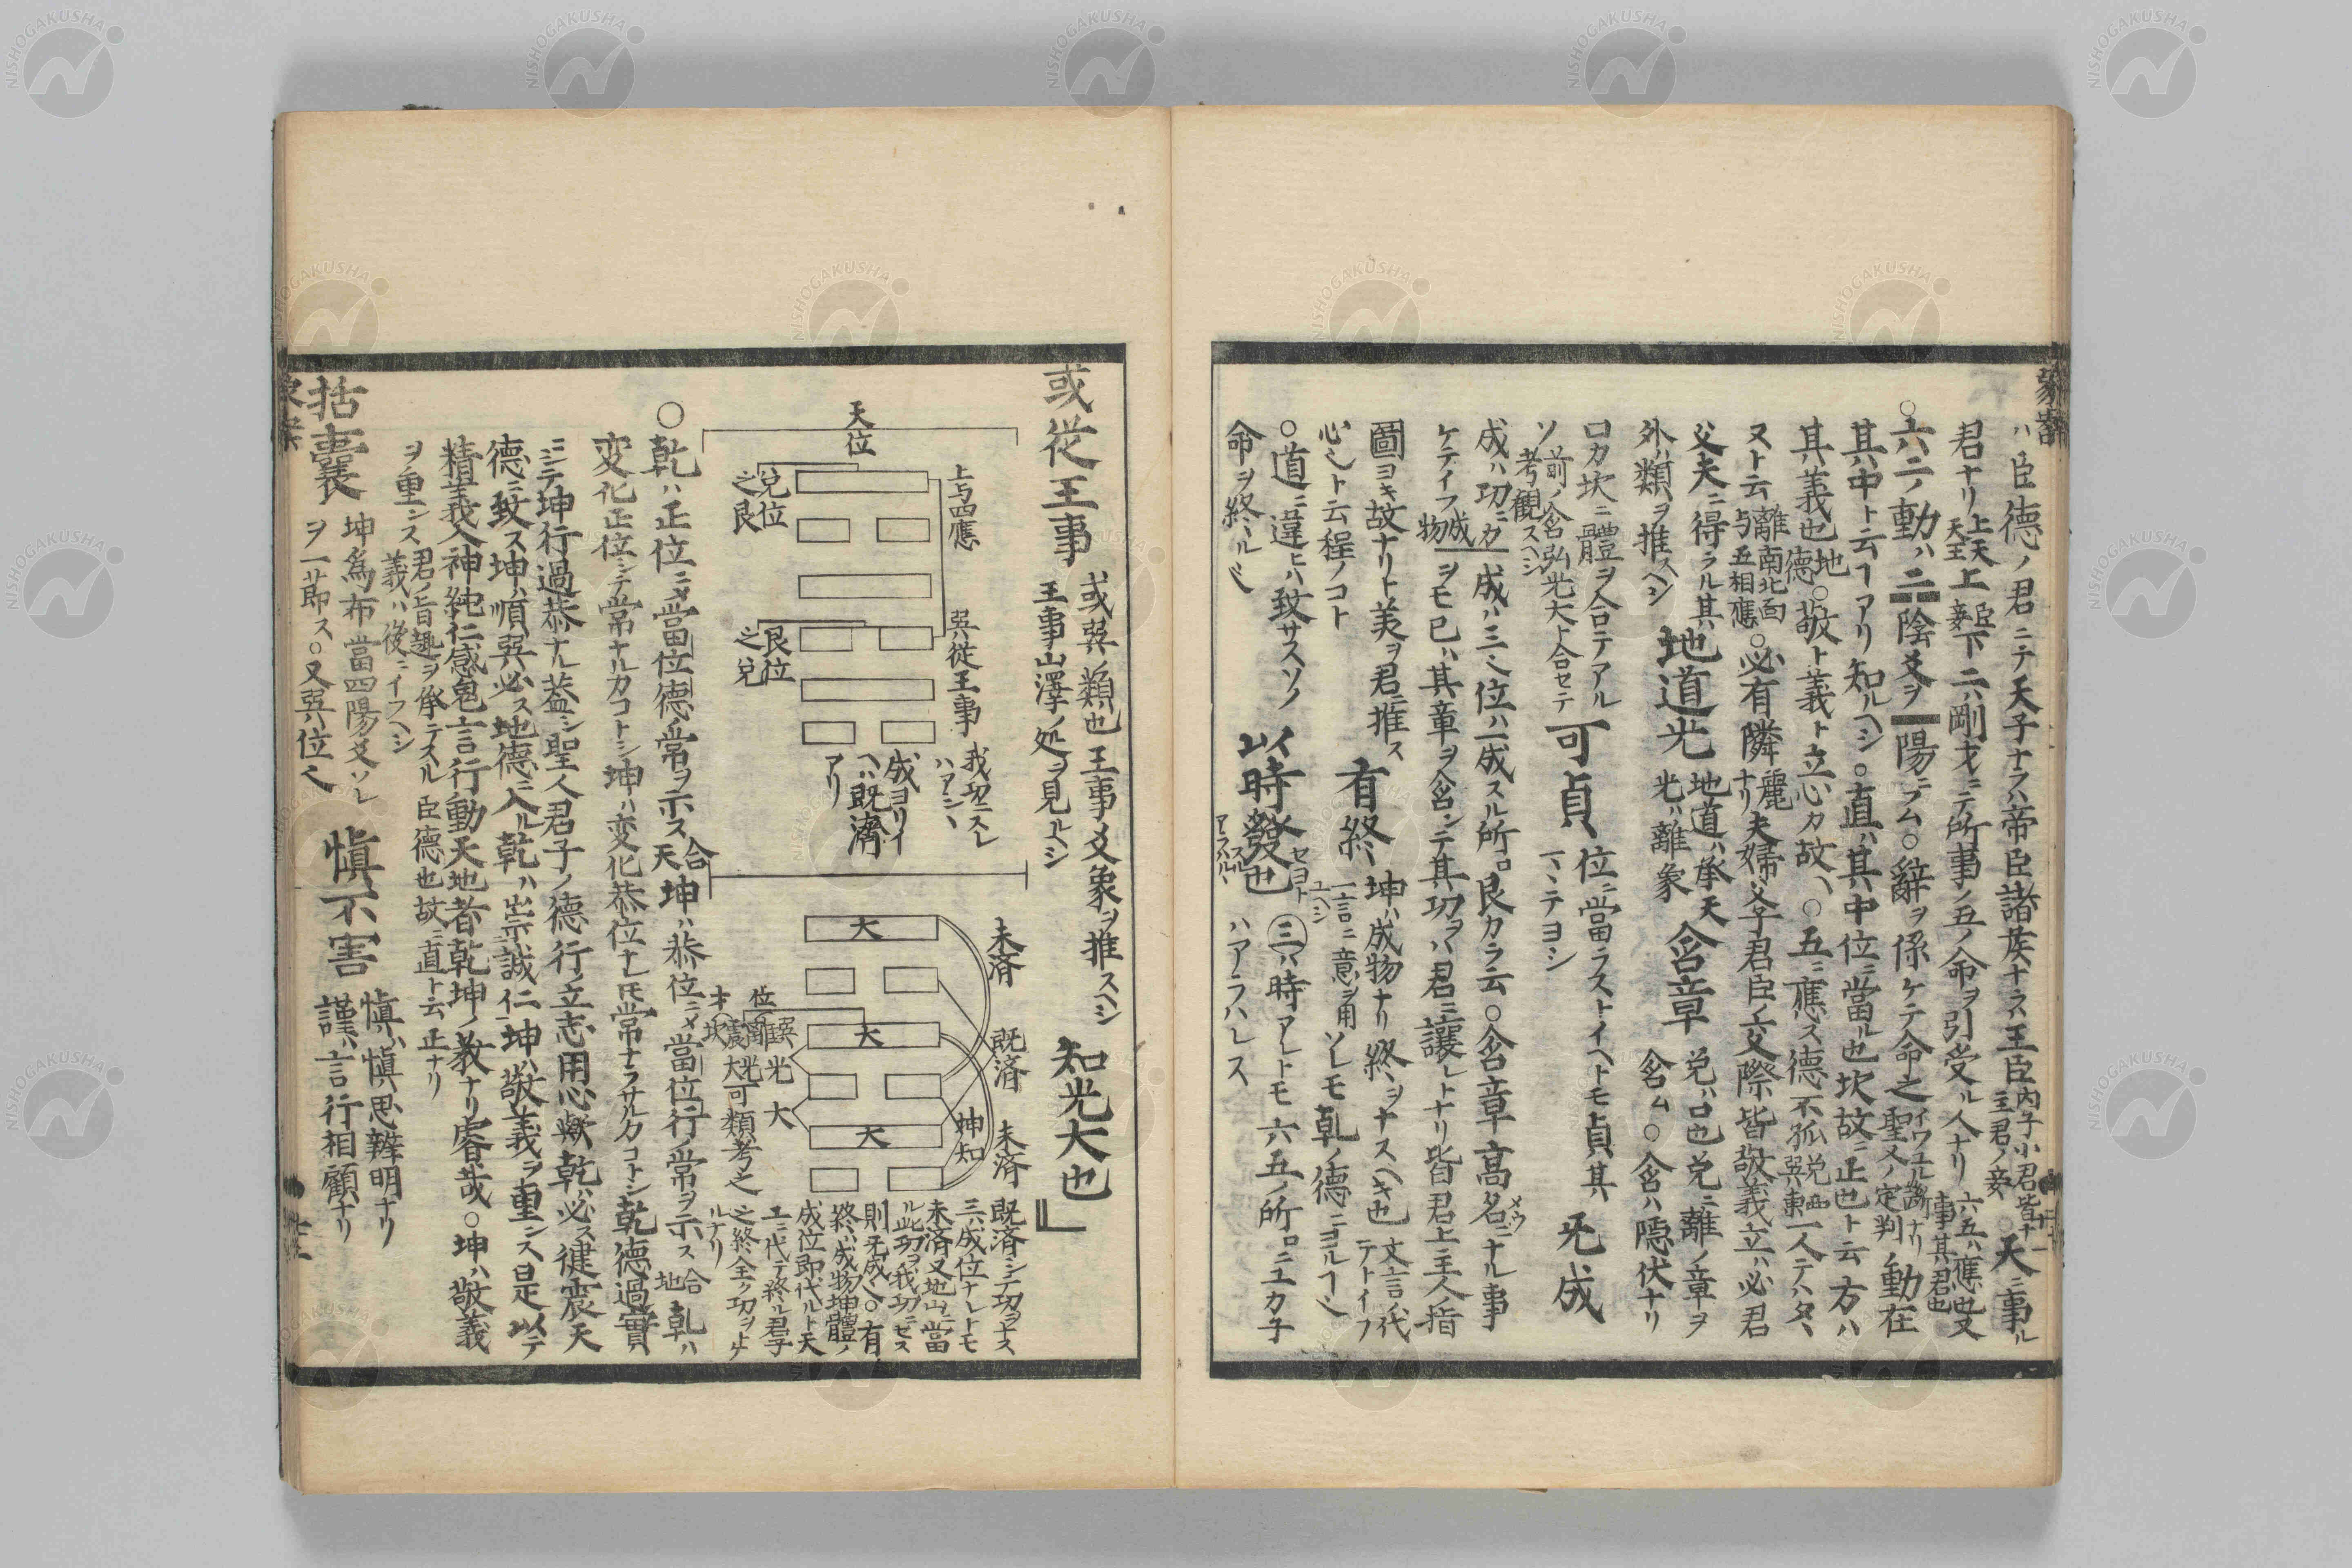 ハ臣德ノ君ニテ天子ナラハ帝臣諸侯ナラハ王臣内子小君皆ナ主君ノ妾○天ニ事ル
君ナリ上天天王上臣妾下二ハ剛才ニテ所事ノ五ノ命ヲ引受ル人ナリ六五ハ應也又事其君也
○六二ノ動ハ二陰爻ヲ一陽ニフム○辭ヲ係ケテ命之イワユル聖人ノ定判ナリ動在
其ハ中ト云コアリ知ルヘシ○直ハ其中位ニ當ル也坎故ニ正也ト云方ハ
其ハ義也地德○敬ト義ト立心カ故ヘ○五ニ應ス德不孤兌西巽東一人テハタヽ
ヌト云離南北面与五相應○必有隣麗ナリ夫婦父子君臣ノ交際皆敬義立ハ必君
父夫ニ得ラル其ハ地道光地道ハ承天光ハ離象含章兌ハ口也兌ニ離ノ章ヲ
外ハ類ヲ推ヘシ含ム○含ハ隠伏ナリ
口カ坎ニ體ヲ合テアル可貞位ニ當ラストイヘトモ貞其无成
ソ前ノ含弘光大ト合セテ考観スヘシ
成ハ功ニカ成ハ三之位ハ一成スル所ロ艮カラ云○含章髙名ニナル事
ケテイフ成物ヲモ已ハ其章ヲ含シテ其功ヲハ君ニ讓レトナリ皆君上主人ノ指
圖ヨキ故ナリト美ヲ君ニ推ス有終坤ハ成物ナリ終ヲナスヘキ也文言ニ代テトイフ
心之ト云程ノコト一言ニ意ヲ用ユヘシソレモ乾ノ德ニヨルコ之
○道ニ違ヒハ致サスソノ以時發也三ハ時アレトモ六五ノ所ロニユカ子
命ヲ終ルハアラハレス
或從王事或巽ノ類也王事ハ爻象ヲ推スヘシ知光大也
王事山澤ノ処ヲ見ルヘシ
天位
上与四應
兌位之艮
巽従王事
艮位之兌
我功ニスレハアシヽ
成ヨリイヘハ既濟アリ
未済
既済
未済
坤知
大
大
大
位
巽光
離光
震大
坎
大
可類考之
既済ニシテ功ヲナス
三ハ成位ナレトモ
未済又地山ニ當
ル此功ヲ我功ニセス
則无成之○有
終ハ成物坤體ノ
成位即代ルト天
ユニ代テ終ル君子
之終全ク功ヲト
ルナリ
○乾ハ正位ニメ當位德ノ常ヲ示ス合天坤ハ恭位ニメ當位行ノ常ヲ示ス合地乾ハ
変化正位シテ常ナルカコトシ坤ハ変化恭位ナレ𪜈常ナラサルカコトシ乾德過實
ニシテ坤行過恭ナル葢シ聖人君子ノ德行立志用心歟乾ハ必ス健震天
德ニ致ス坤ハ順巽必ス地德ニ入ル乾ハ崇誠仁坤ハ敬義ヲ重ンス是以テ
精義入神純仁感鬼言行動天地者乾坤ノ教ナリ睿哉○坤ハ敬義
ヲ重ンス君ノ旨趣ヲ承テスル臣德也故ニ直ト云正ナリ
義ハ後ニイフヘシ
括囊坤為布當四陽爻ソレヲ一莭ス○又巽ハ位之愼不害愼ハ愼思辨明ナリ
謹ハ言行相顧ナリ